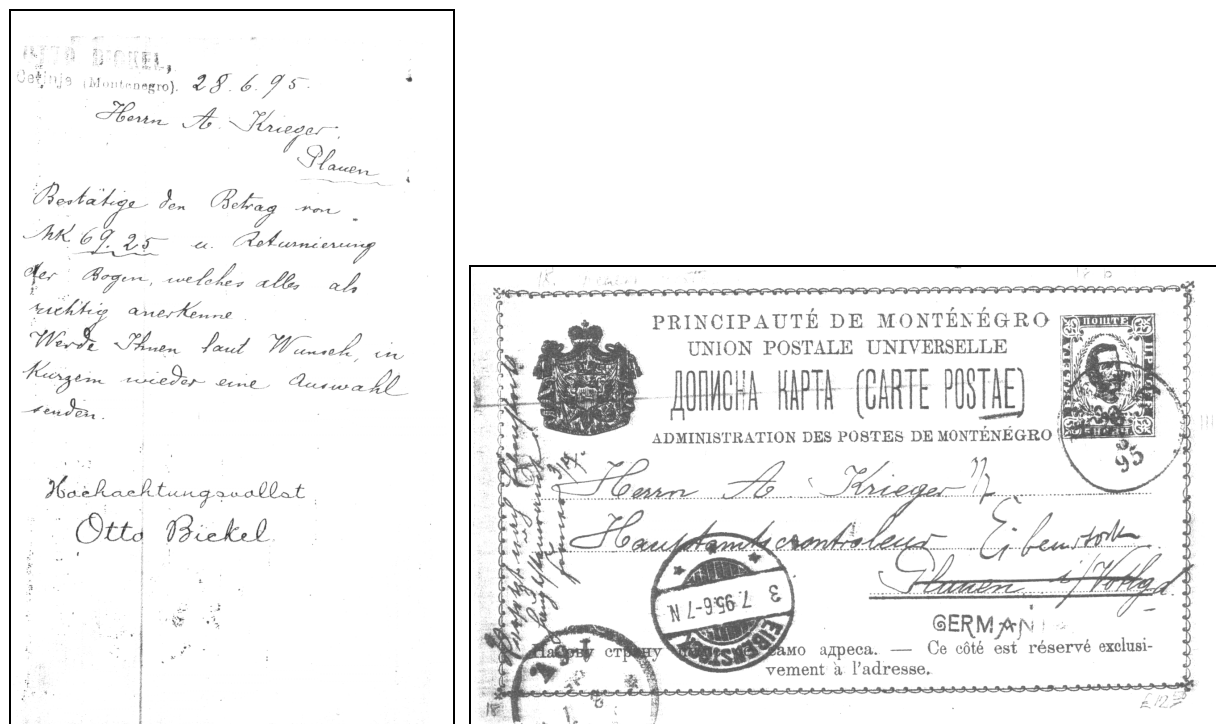 OTTO BICKEL,
Cetinje (Montenegro). 28.6.95.
Herrn A. Krieger,
Plauen
Bestätige den Betrag von
Mk 69.25 u. Returnierung
der Bogen, welches alles als
richtig anerkenne.
Werde Ihnen laut Wunsch, in
Kurzem wieder eine Auswahl
senden.
Hochachtungsvollst
Otto Bickel
PRINCIPAUTÉ DE MONTÉNÉGRO
UNION POSTALE UNIVERSELLE
ДОПИСНА КАРТА (CARTE POSTAE)
ADMINISTRATION DES POSTES DE MONTÉNÉGRO
ПОШТЕ
95
Herrn A. Krieger
Hauptamtscontroleur Eibenstock
Plauen i/Voigtld.
3 7.95.6-7 N
EIBENSTOCK
GERMANI
На страну само адреса. — Ce côté est réservé exclusi-
vement à l'adresse.